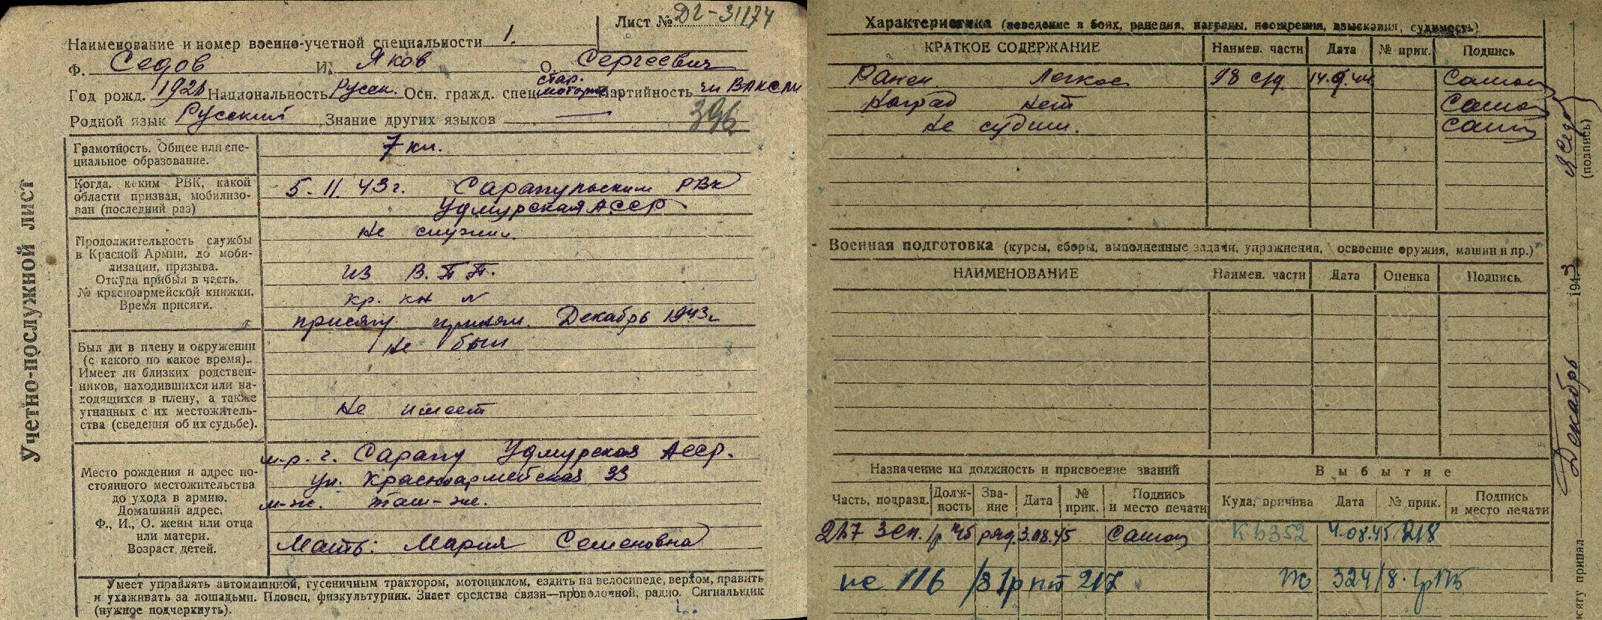 Учетно-послужной лист
Лист № ДГ-31174
Наименование и номер военно-учетной специальности 1.
Ф. Седов И. Яков О. Сергеевич
Год рожд. Национальность Русск. Осн. гражд. спец. стар. Партийность чл ВЛКСМ
Родной язык Русский Знание других языков —
396
Грамотность. Общее или спе-
циальное образование.
7 кл.
Когда, каким РВК, какой
области призван, мобилизо-
ван (последний раз)
5.11.43 г. Сарапульским РВК
Удмурская АССР
Продолжительность службы
в Красной Армии, до моби-
лизации, призыва.
Откуда прибыл в часть.
№ красноармейской книжки.
Время присяги.
Не служил.
из В.П.П.
кр. кн №
присягу принял. Декабрь 1943 г
Был ли в плену и окружении
(с какого по какое время).
Имеет ли близких родствен-
ников, находившихся или на-
ходящихся в плену, а также
угнанных с их местожитель-
ства (сведения об их судьбе).
Не был
Не имеет
Место рождения и адрес по-
стоянного местожительства
до ухода в армию.
Домашний адрес.
Ф., И., О. жены или отца
или матери.
Возраст детей.
м-р. г. Сарапу Удмурская АССР.
ул. Красноармейская 33
м-ж. там-же.
Мать: Мария Семеновна
Умеет управлять автомашиной, гусеничным трактором, мотоциклом, ездить на велосипеде, верхом, править
и ухаживать за лошадьми. Пловец, физкультурник. Знает средства связи—проволочной, радио. Сигнальщик
(нужное подчеркнуть).
Характеристика (поведение в боях, ранения, награды, поощрения, взыскания, судимость)
КРАТКОЕ СОДЕРЖАНИЕ Наимен. части Дата № прик. Подпись
Ранен Легкое 98 с/д.
Наград нет
Не судим.
Военная подготовка (курсы, сборы, выполненные задачи, упражнения, освоение оружия, машин и пр.)
НАИМЕНОВАНИЕ Наимен. части Дата Оценка Подпись
Назначение на должность и присвоение званий Выбытие
Часть, подразд. Долж-
ность Зва-
ние Дата №
прик. Подпись
и место печати Куда, причина Дата № прик. Подпись
и место печати
217 Зсп. ряд. 3.08.45 4.08.45 218
(подпись)
Декабрь 1943